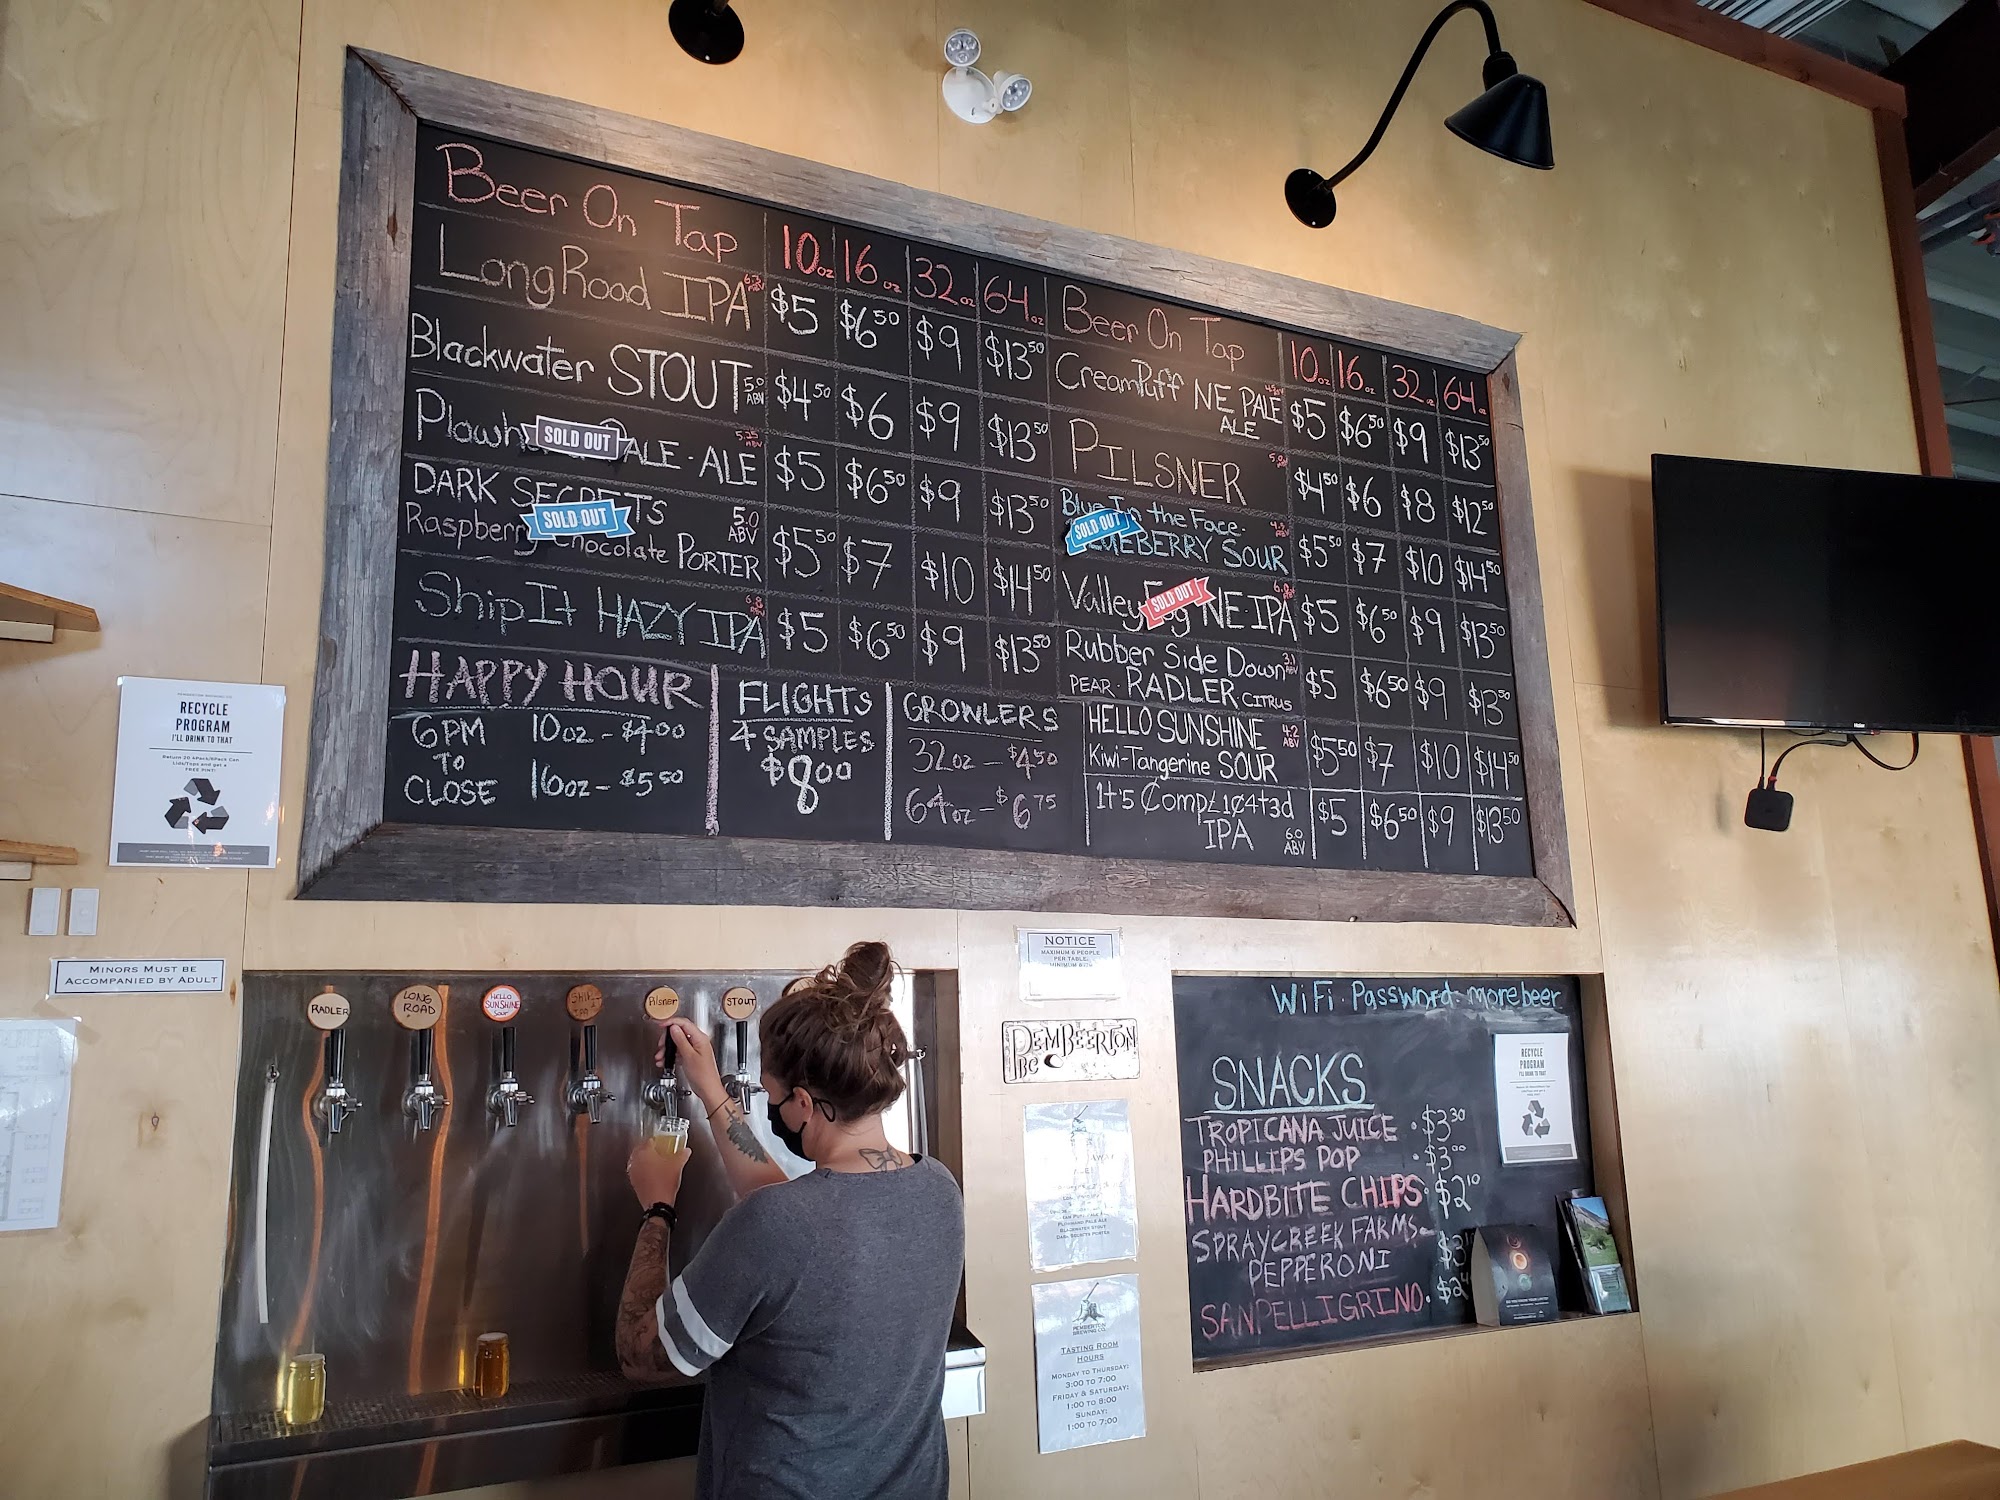 Beer On Tap 10oz 16oz 32oz 64oz
Long Road IPA 6.3 ABV $5 $6 50 $9 $13 50
Blackwater STOUT 5.0 ABV $4 50 $6 $9 $13 50
SOLD OUT
PALE-ALE 5.25 ABV $5 $6 50 $9 $13 50
DARK SECRETS 5.0 ABV
SOLD OUT
Raspberry Chocolate PORTER $5 50 $7 $10 $14 50
Ship It HAZY IPA 6.8 ABV $5 $6 50 $9 $13 50
HAPPY HOUR
6PM TO CLOSE
10oz - $4 00
16oz - $5 50
FLIGHTS
4 SAMPLES
$8 00
GROWLERS
32oz - $4 50
64oz - $6 75
Beer On Tap 10oz 16oz 32oz 64oz
CreamPuff NE PALE ALE $5 $6 50 $9 $13 50
PILSNER $4 50 $6 $8 $12 50
Blue In the Face -
SOLD OUT
SOUR $5 50 $7 $10 $14 50
Valley NE-IPA $5 $6 50 $9 $13 50
SOLD OUT
Rubber Side Down 3.1 ABV
PEAR - RADLER CITRUS $5 $6 50 $9 $13 50
HELLO SUNSHINE 4.2 ABV
Kiwi-Tangerine SOUR $5 50 $7 $10 $14 50
1t's Comp£1¢4t3d
IPA 6.0 ABV $5 $6 50 $9 $13 50
RECYCLE
PROGRAM
I'LL DRINK TO THAT
Return 20 4Pack/6Pack Can
Lids/Tops and get a
FREE PINT!
MINORS MUST BE
ACCOMPANIED BY ADULT
RADLER
LONG ROAD
HELLO SUNSHINE Sour
Pilsner
STOUT
NOTICE
MAXIMUM 6 PEOPLE
PER TABLE.
PEMBEERTON
BC
BLACKWATER STOUT
DARK SECRETS PORTER
PEMBERTON
BREWING CO.
TASTING ROOM
HOURS
MONDAY TO THURSDAY:
3:00 TO 7:00
FRIDAY & SATURDAY:
1:00 TO 8:00
SUNDAY:
1:00 TO 7:00
WiFi - Password: morebeer
SNACKS
TROPICANA JUICE - $3 30
PHILLIPS POP - $3 00
HARDBITE CHIPS - $2 10
SPRAYCREEK FARMS -
PEPPERONI
SANPELLIGRINO -
RECYCLE
PROGRAM
I'LL DRINK TO THAT
Haier